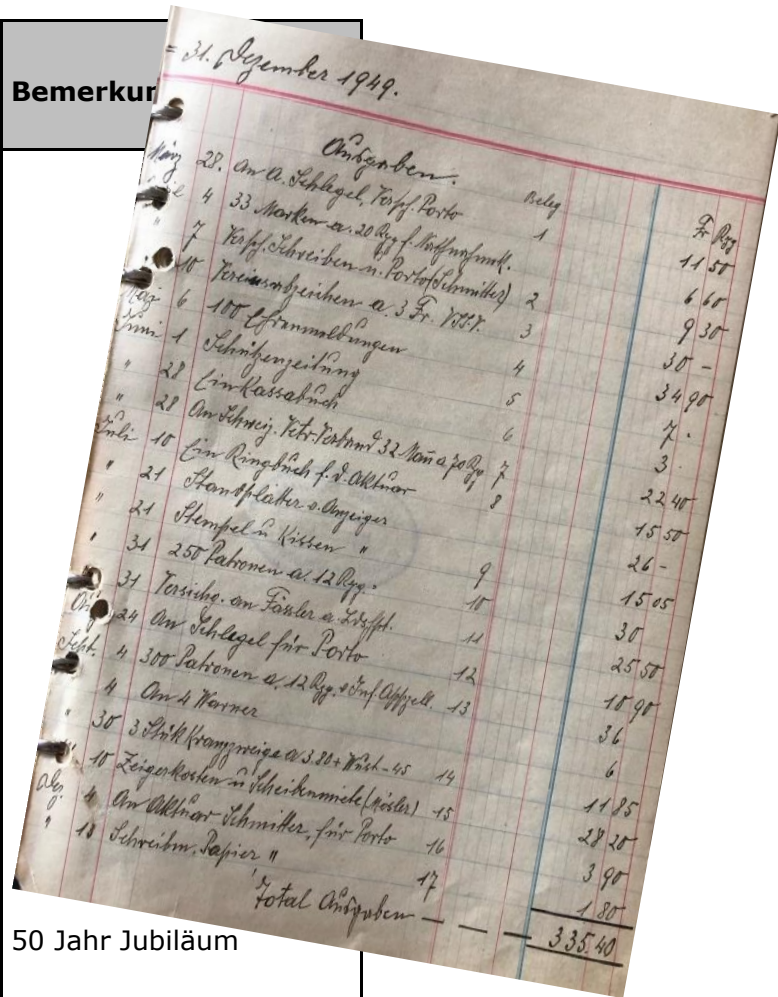 Bemerkun
= 31. Dezember 1949.
Ausgaben.
Beleg
Fr Rpg
März 28. An A. Schlegel, Versch. Porto 1 11 50
4 33 Marken a. 20 Rpg f. 6 60
" 7 Versch. Schreiben u. Porto (Schmitter) 2 9 30
10 Vereinsabzeichen a. 3 Fr. 3 30 –
Mai 6 100 4 34 90
Juni 1 Schützenzeitung 5 7 ·
" 28 Ein Kassabuch 6 3 ·
" 28 An Schweiz. Vetr. Verband 32 Mann a 70 Rpg 7 22 40
Juli 10 Ein Ringbuch f. d. Aktuar 8 15 50
" 21 Standblätter u. Anzeiger 26 –
" 21 Stempel u Kissen " 9 15 05
" 31 250 Patronen a. 12 Rpg. 10 30
31 Versichg. an Fässler a. 11 25 50
Aug 24 An Schlegel für Porto 12 10 90
Sept. 4 300 Patronen a. 12 Rpg. 13 36
" 4 An 4 Warner 6
30 3 Stük Kranzzweige a 3.80 + Wust -45 14 11 85
10 Zeigerkosten u Scheibenmiete (Mösler) 15 28 20
Dez. 4 An Aktuar Schmitter, für Porto 16 3 90
" 13 Schreibm. Papier " 17 1 80
Total Ausgaben — — — 335.40
50 Jahr Jubiläum